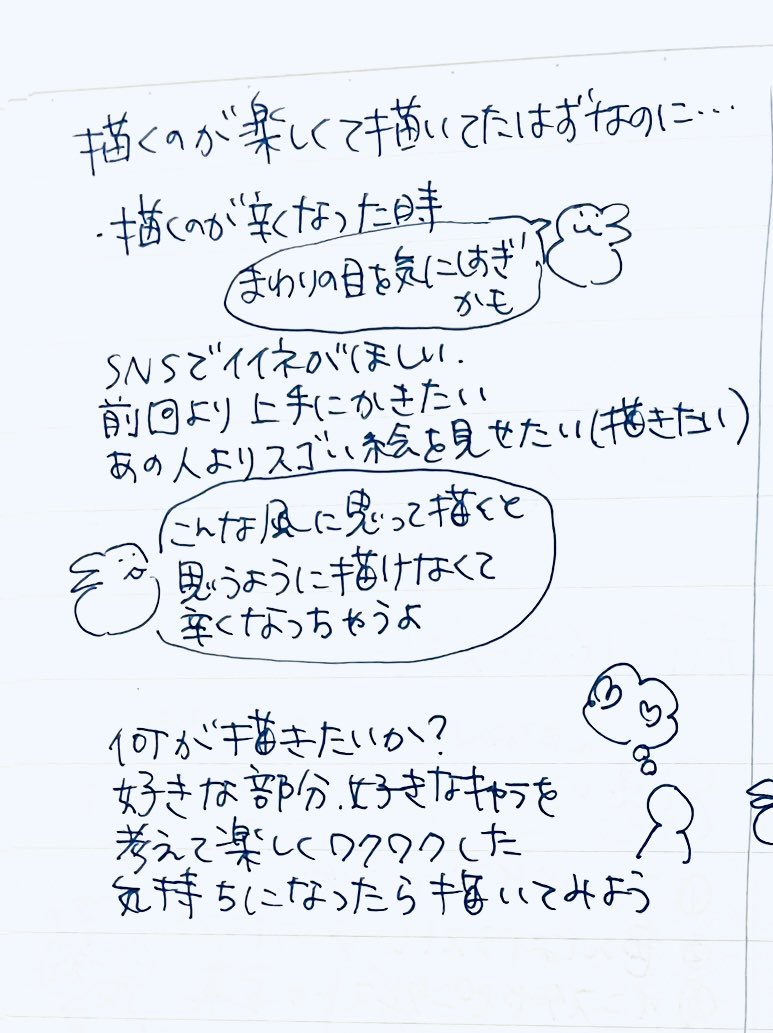 描くのが楽しくて描いてたはずなのに…
・描くのが辛くなった時
まわりの目を気にしすぎ
かも
SNSでイイネがほしい.
前回より上手にかきたい
あの人よりスゴい絵を見せたい(描きたい)
こんな風に思って描くと
思うように描けなくて
辛くなっちゃうよ
何が描きたいか?
好きな部分.好きなキャラを
考えて楽しくワクワクした
気持ちになったら描いてみよう